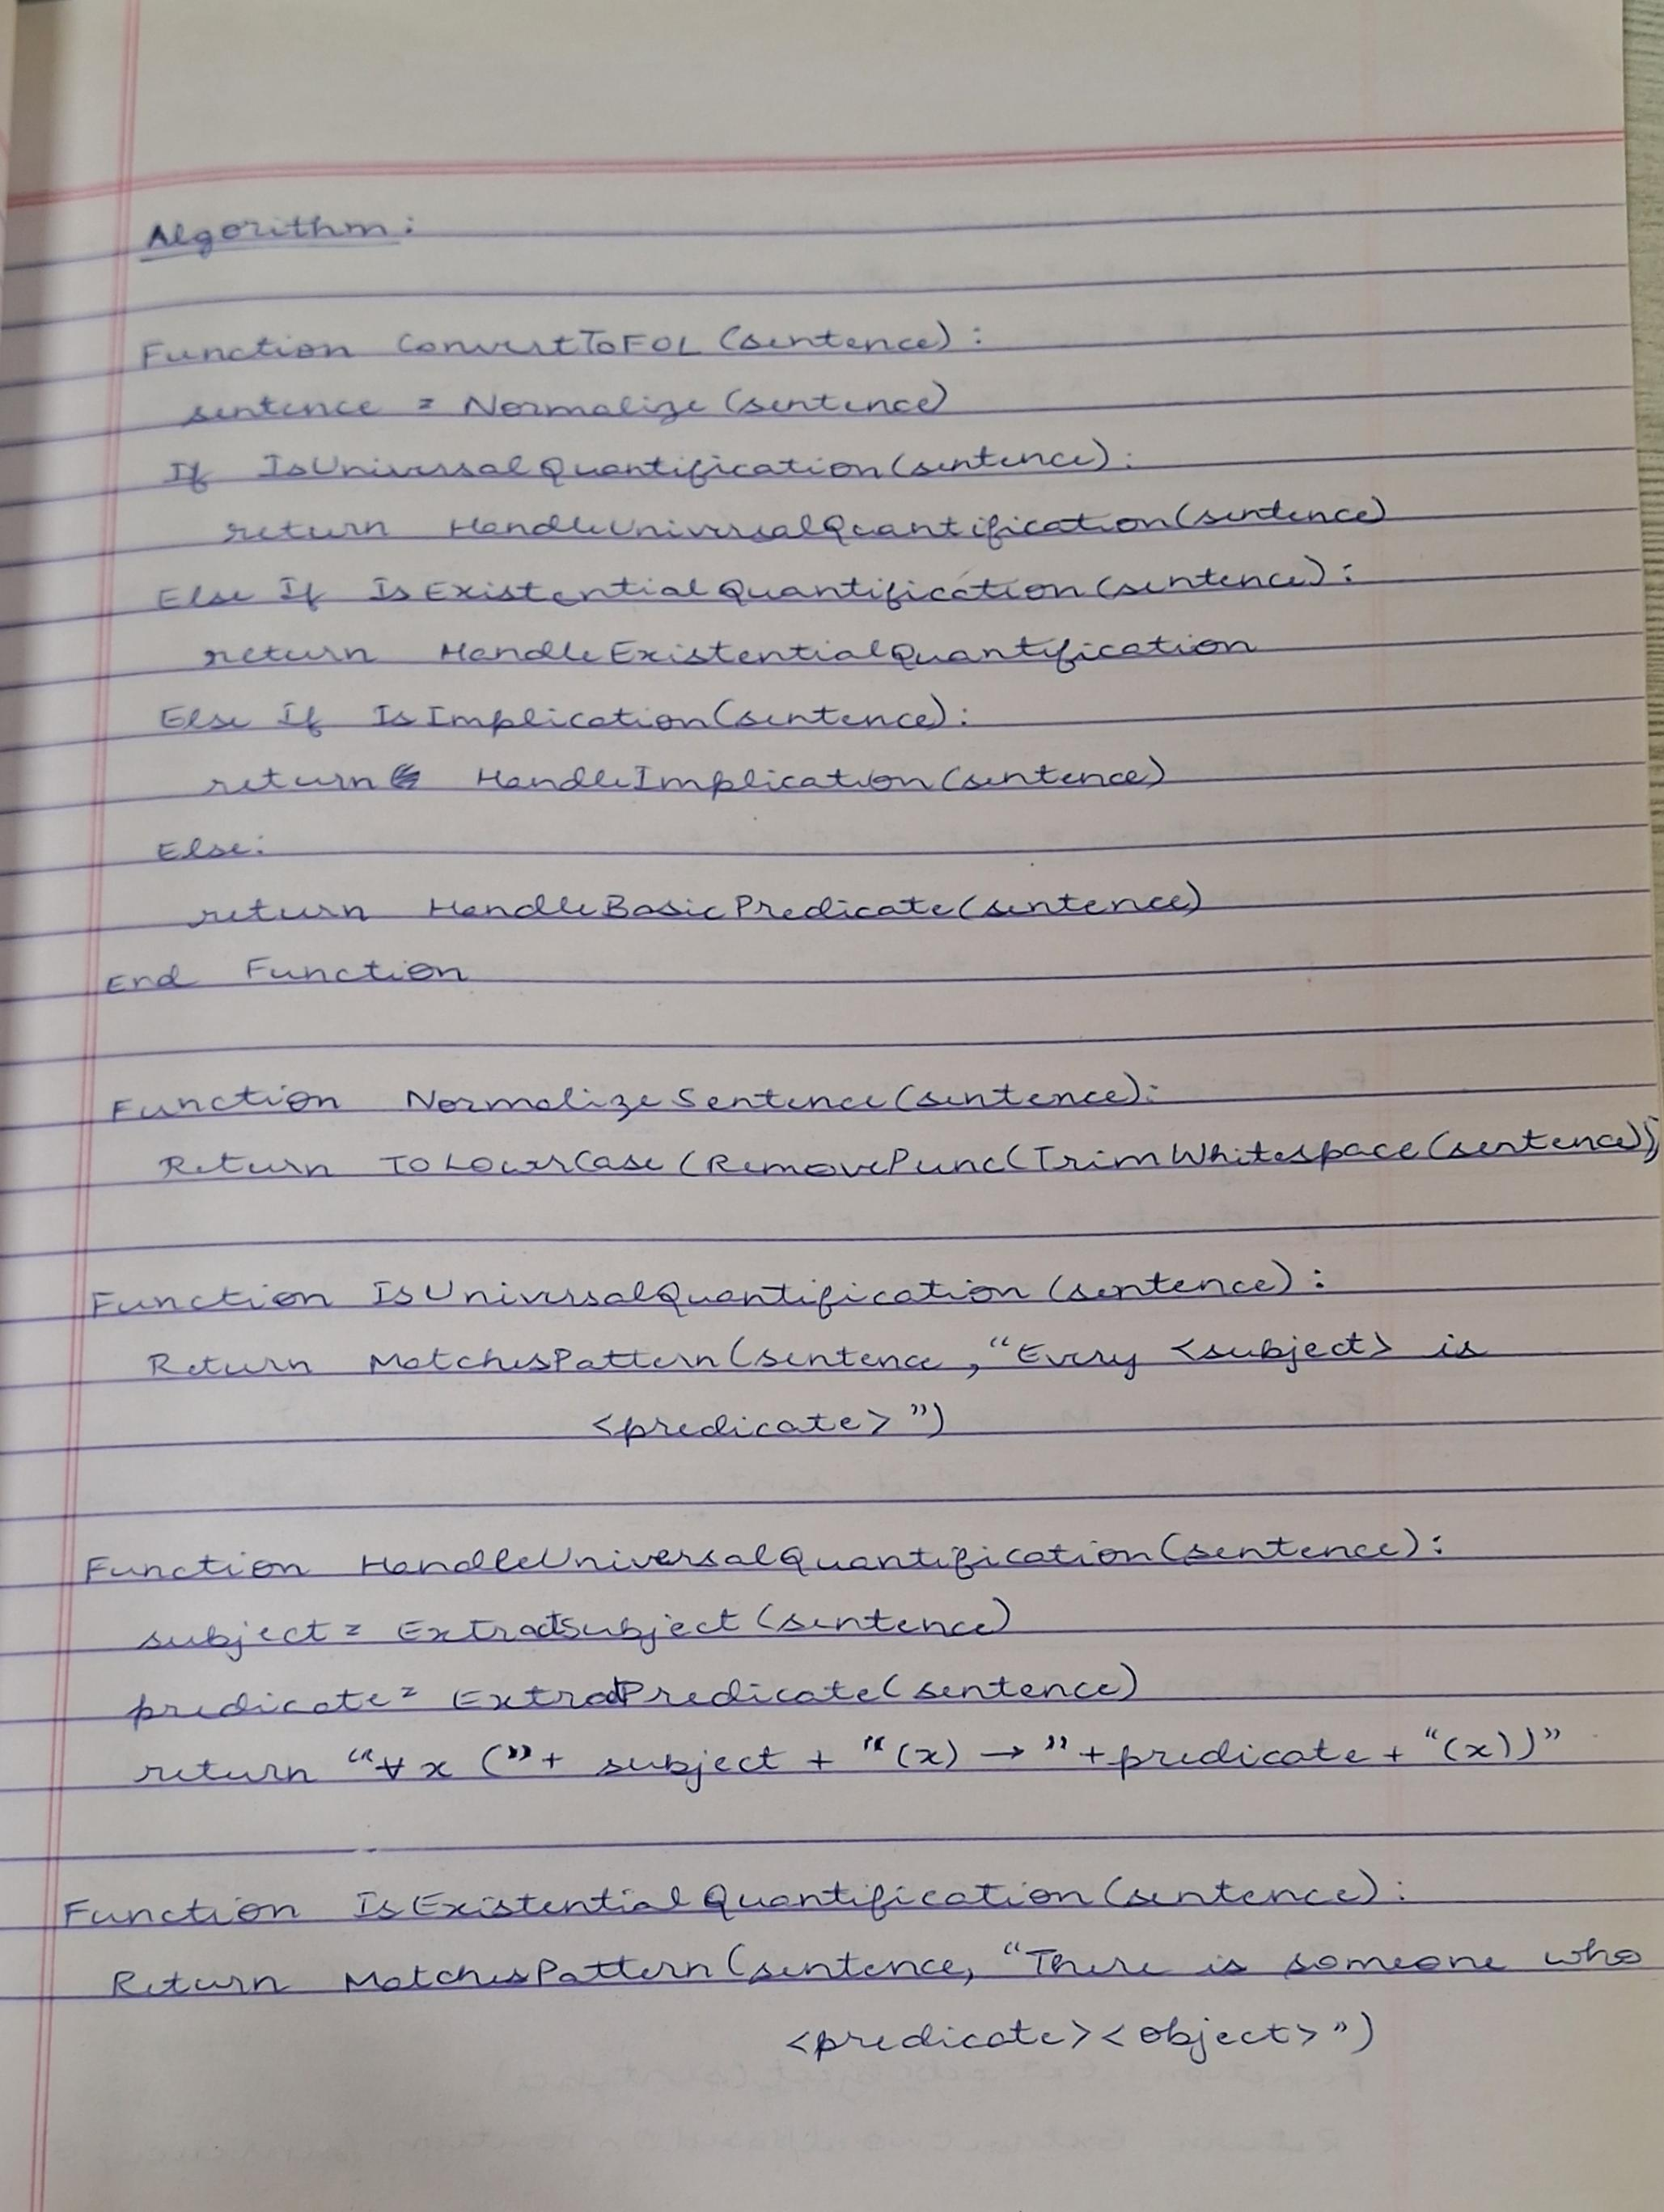 Algorithm:
Function ConvertToFOL (sentence):
sentence = Normalize (sentence)
If IsUniversalQuantification (sentence):
return HandleUniversalQuantification (sentence)
Else If IsExistentialQuantification (sentence):
return HandleExistentialQuantification
Else If IsImplication (sentence):
return HandleImplication (sentence)
Else:
return HandleBasicPredicate (sentence)
End Function
Function NormalizeSentence (sentence):
Return ToLowerCase (RemovePunc (TrimWhitespace (sentence))
Function IsUniversalQuantification (sentence):
Return MatchesPattern (sentence, "Every <subject> is
<predicate>")
Function HandleUniversalQuantification (sentence):
subject = ExtractSubject (sentence)
predicate = ExtractPredicate (sentence)
return "∀x (" + subject + "(x) → " + predicate + "(x))"
Function IsExistentialQuantification (sentence):
Return MatchesPattern (sentence, "There is someone who
<predicate><object>")